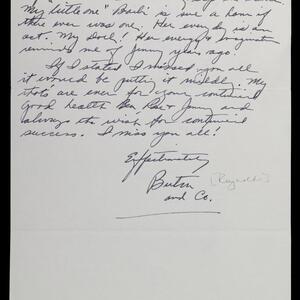 My "little one" "Barbi" is sure a ham if
there ever was one. Her every day is an
act. My Doll! Her energy &
reminds me of Jimmy years ago!
If I stated I missed you all
it would be putting it mildly. My
thot's are ever for your continued
good health & Jimmy and
always the wish for continued
success. I miss you all!
Effectionately
and Co.
[Reynolds]